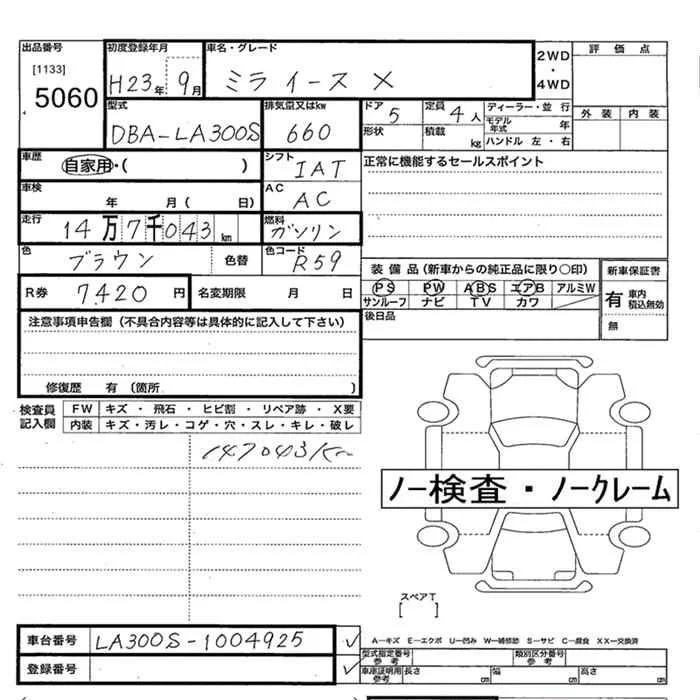 出品番号 初度登録年月 車名・グレード 2WD・4WD 評価点
[1133] 5060 H23年 9月 ミライース X
型式 排気量又はkw ドア 5 定員 4人 ディーラー・並行 外装 内装
DBA-LA300S 660 形状 積載 kg モデル年式 年
ハンドル 左・右
車歴 自家用・( ) シフト IAT 正常に機能するセールスポイント
車検 年 月( 日) AC AC
走行 14万7千043km 燃料 ガソリン
色 ブラウン 色替 色コード R59
装備品(新車からの純正品に限り○印) 新車保証書
R券 7420円 名変期限 月 日 PS PW ABS エアB アルミW 有 車内積込無効
サンルーフ ナビ TV カワ 無
注意事項申告欄(不具合内容等は具体的に記入して下さい) 後日品
修復歴 有(箇所 )
検査員記入欄 FW キズ・飛石・ヒビ割・リペア跡・X要
内装 キズ・汚レ・コゲ・穴・スレ・キレ・破レ
147043km
ノー検査・ノークレーム
スペアT
[ ]
車台番号 LA300S-1004925 ✓ A-キズ E-エクボ U-凹み W-補修跡 S-サビ C-腐食 XX-交換済
型式指定番号 参考 類別区分番号 参考
登録番号 ✓ 車庫証明用 参考 長さ cm 幅 cm 高さ cm